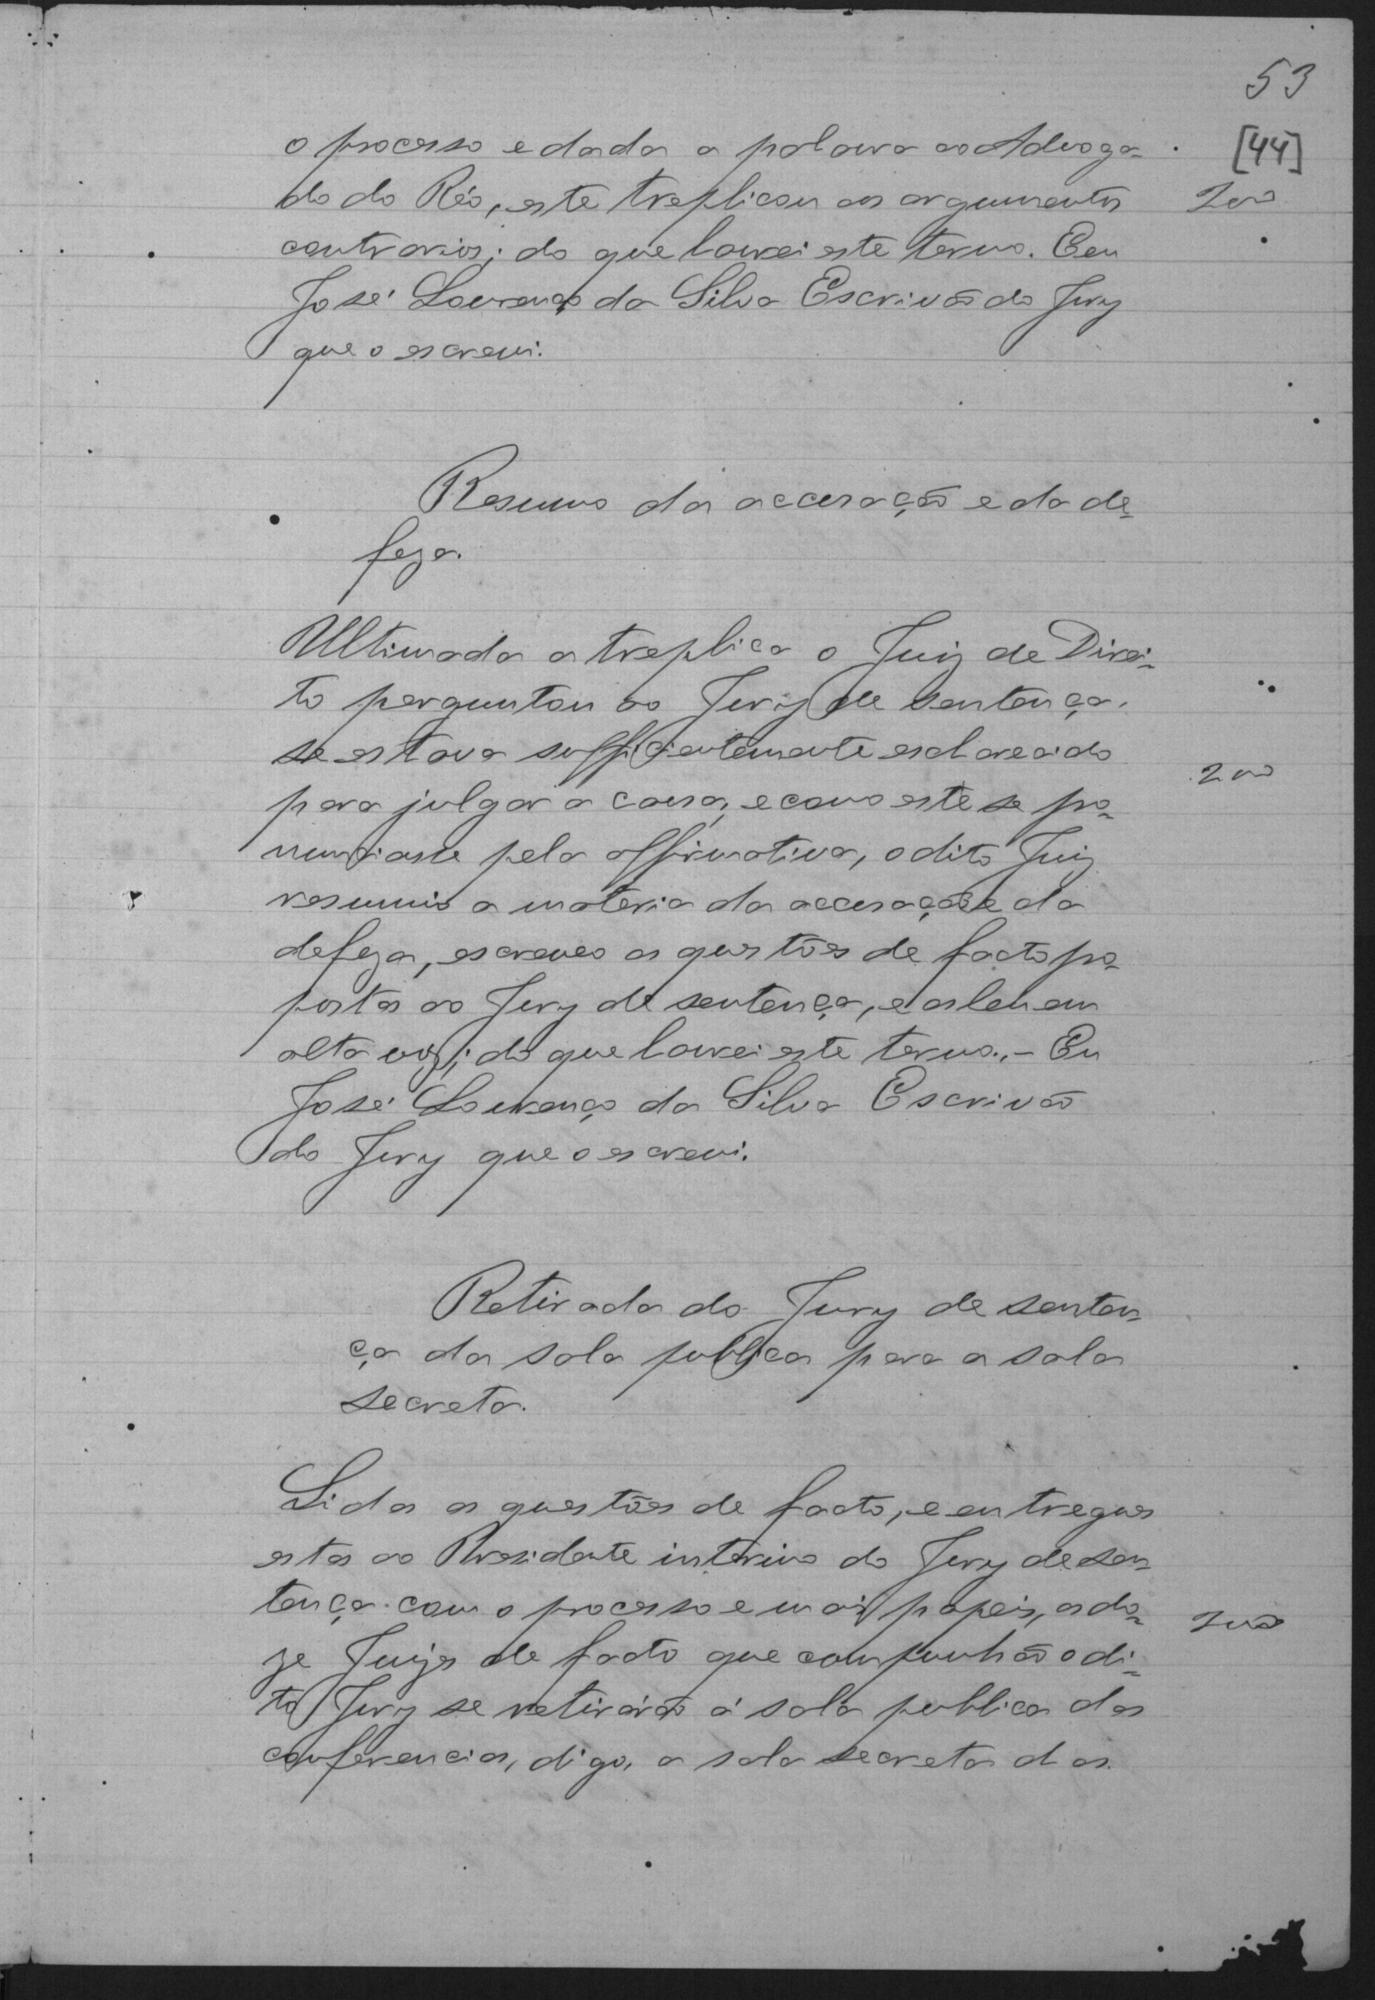 53
[44]
o processo e dada a palavra ao Advoga-
do do Réo, este treplicou os argumentos
200
contrarios; do que lavrei este termo. Eu
José Lourenço da Silva Escrivão do Jury
que o escrevi.
Resumo da accusação e da de-
feza.
Ultimada a treplica o Juiz de Direi-
to perguntou ao Jury de sentença
se estava sufficientemente esclarecido
200
para julgar a causa, e como este se pro-
nunciasse pela affirmativa, o dito Juiz
resumio a materia da accusação e da
defeza, escreveo as questões de facto pro-
postas ao Jury de sentença, e as leu em
alta voz; do que lavrei este termo. - Eu
José Lourenço da Silva Escrivão
do Jury que o escrevi.
Retirada do Jury de senten-
ça da sala publica para a sala
secreta.
Lida as questões de facto, e entregues
estas ao Presidente interino do Jury de sen-
tença com o processo e mais papeis, os do-
200
ze Juizes de facto que compunhão o di-
to Jury se retirárão á sala publica das
conferencias, digo, a sala secreta das